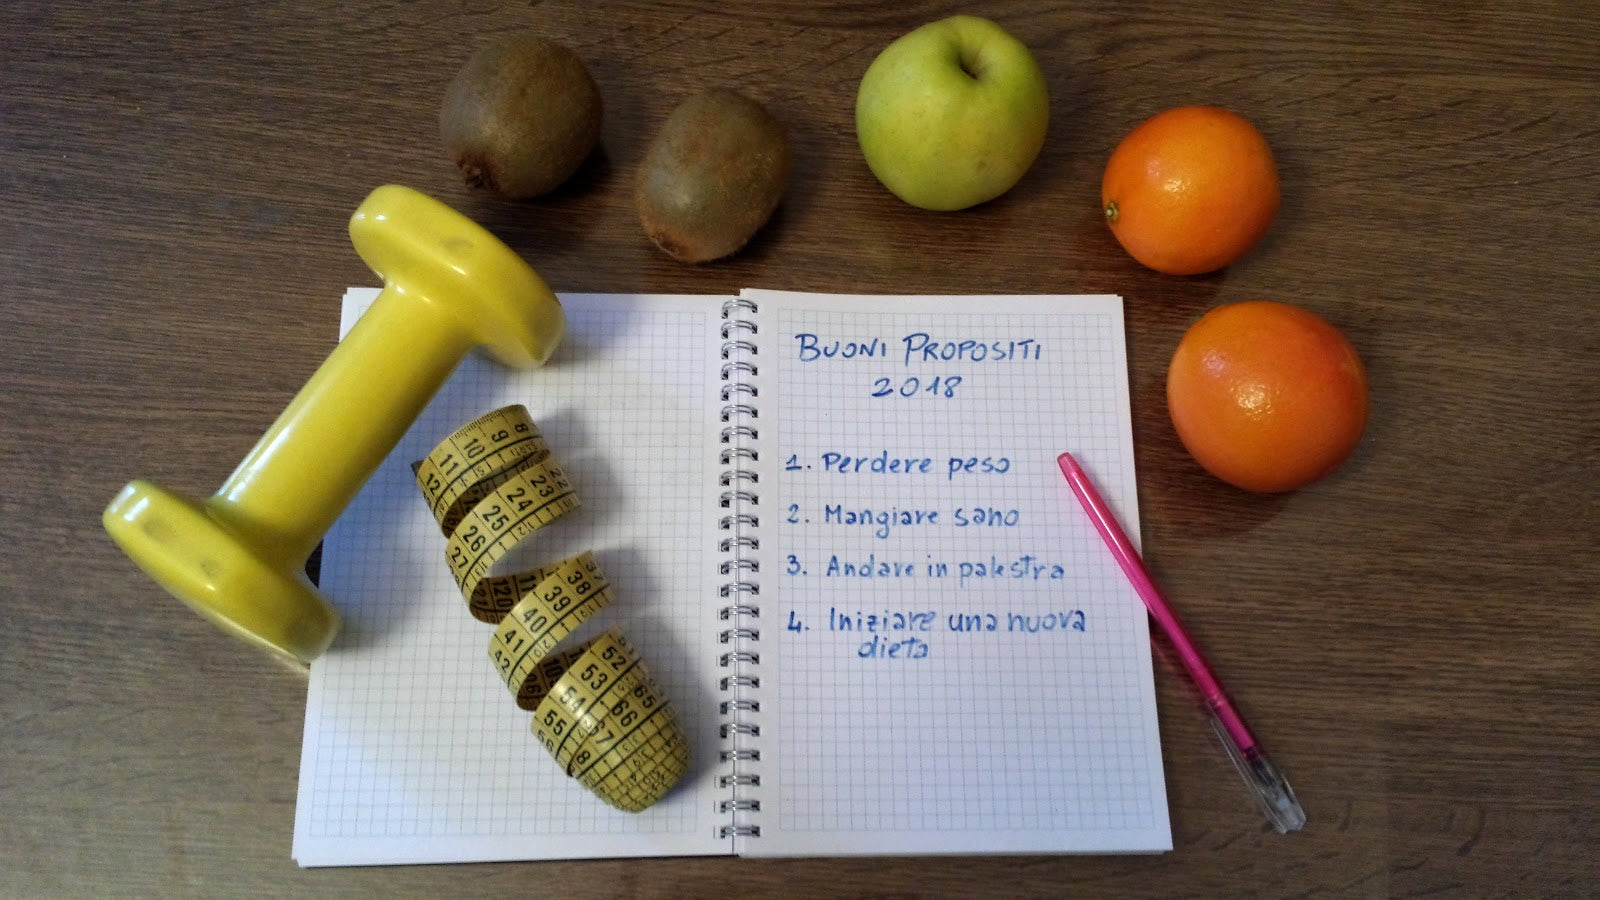 BUONI PROPOSITI
2018
1. Perdere peso
2. Mangiare sano
3. Andare in palestra
4. Iniziare una nuova
dieta
8
9
10
11
12
22
23
24
25
26
27
37
38
39
40
41
42
52
53
54
55
56
65
66
67
120